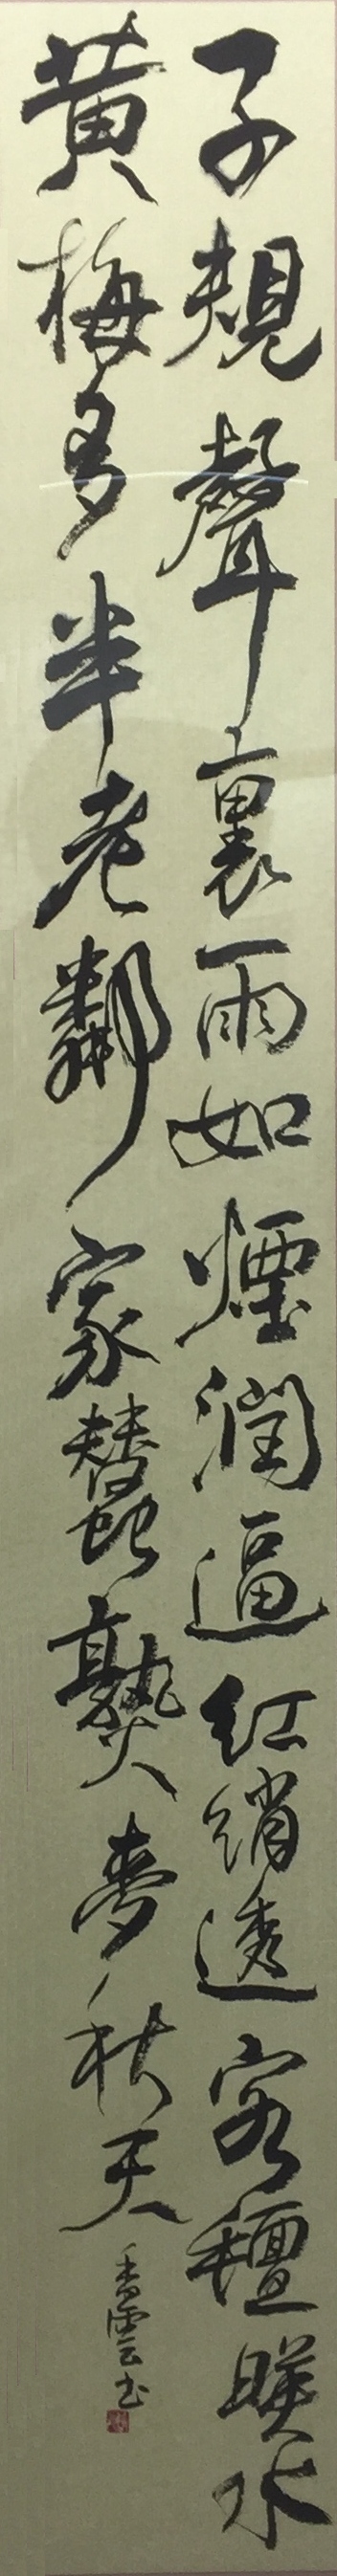 子規聲裏雨如煙潤逼紅綃透客氈映水
黃梅多半老鄰家蠶熟麥秋天
香雲书